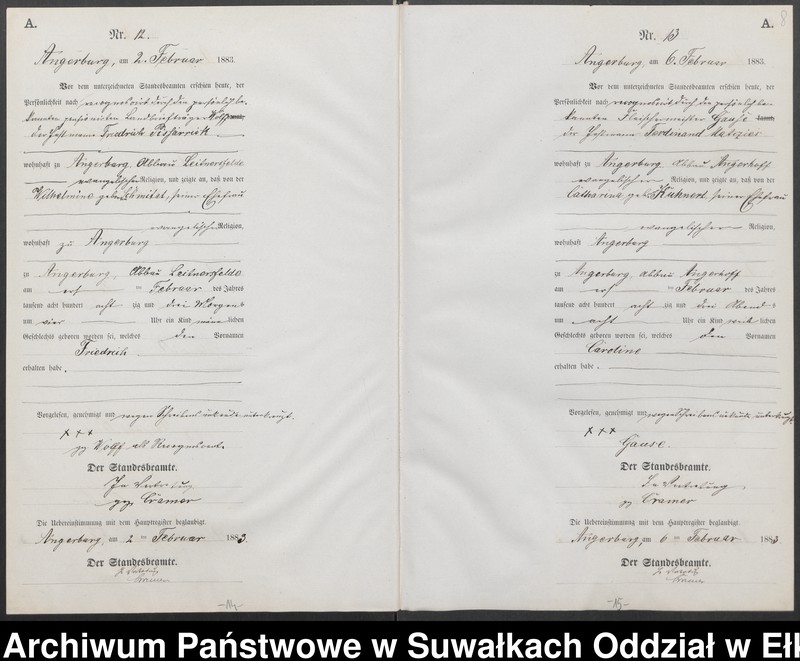 A.
Nr. 12.
Angerburg, am 2. Februar 1883.
Vor dem unterzeichneten Standesbeamten erschien heute, der
Persönlichkeit nach recognoscirt durch den persönlich be-
kannten Landbriefträger Wolff
der Friedrich
wohnhaft zu Angerburg Abbau Leitnersfelde
evangelischer Religion, und zeigte an, daß von der
Wilhelmine geb. seiner Ehefrau
evangelischer Religion,
wohnhaft zu Angerburg
zu Angerburg, Abbau Leitnersfelde
am ersten Februar des Jahres
tausend acht hundert acht zig und drei Morgens
um vier Uhr ein Kind männ lichen
Geschlechts geboren worden sei, welches den Vornamen
Friedrich
erhalten habe.
Vorgelesen, genehmigt und wegen Schreibens unkunde unterkreuzt.
+++
gez Wolff als Recognoscent.
Der Standesbeamte.
In Vertretung
gez. Cramer
Die Uebereinstimmung mit dem Hauptregister beglaubigt.
Angerburg, am 2 ten Februar 1883.
Der Standesbeamte.
In Vertretung
Cramer
-14-
A.
8
Nr. 13
Angerburg am 6. Februar 1883.
Vor dem unterzeichneten Standesbeamten erschien heute, der
Persönlichkeit nach recognoscirt durch den persönlich be-
kannten Fleischermeister Gause
der Ferdinand
wohnhaft zu Angerburg Abbau Angerhoff
evangelischer Religion, und zeigte an, daß von der
Catharina geb. Kuhnert, seiner Ehefrau
evangelischer Religion,
wohnhaft Angerburg
zu Angerburg, Abbau Angerhoff
am ersten Februar des Jahres
tausend acht hundert acht zig und drei Abend s
um acht Uhr ein Kind weib lichen
Geschlechts geboren worden sei, welches den Vornamen
Caroline
erhalten habe.
Vorgelesen, genehmigt und wegen Schreibens unkunde unterkreuzt
+++
Gause.
Der Standesbeamte.
In Vertretung
gz Cramer
Die Uebereinstimmung mit dem Hauptregister beglaubigt.
Angerburg, am 6 ten Februar 1883
Der Standesbeamte.
In Vertretung
Cramer
-15-
Archiwum Państwowe w Suwałkach Oddział w Ełk